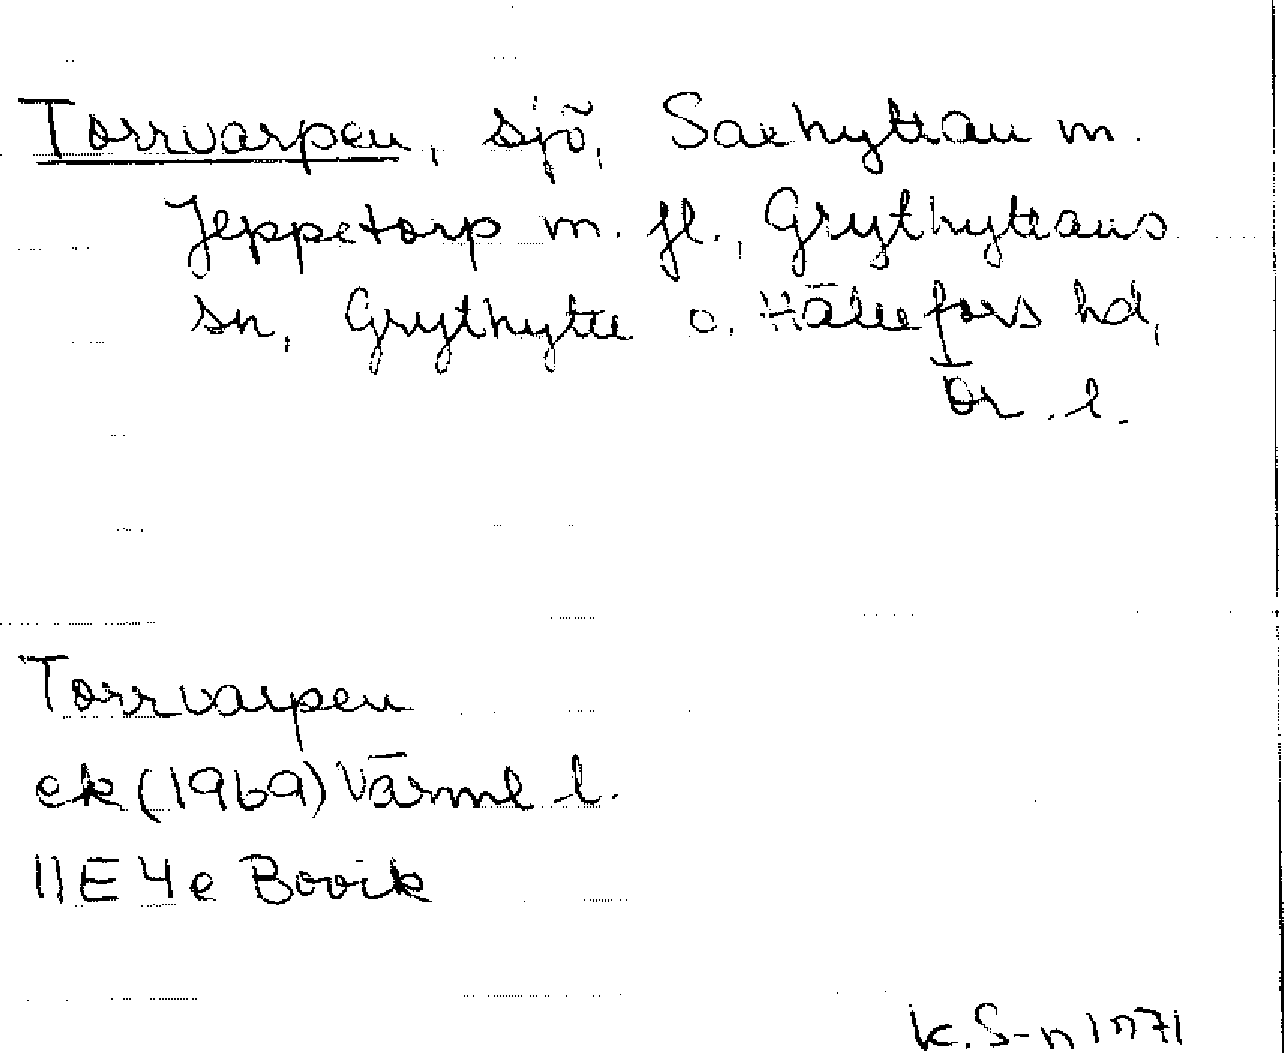 Torrvarpen, sjö, Saxhyttan m.
Jeppetorp m. fl., Grythyttans
sn, Grythytte o. Hällefors hd,
Ör. l.
Torrvarpen
ek (1969) Värml l.
11E 4e Bovik
K. S-n 1971